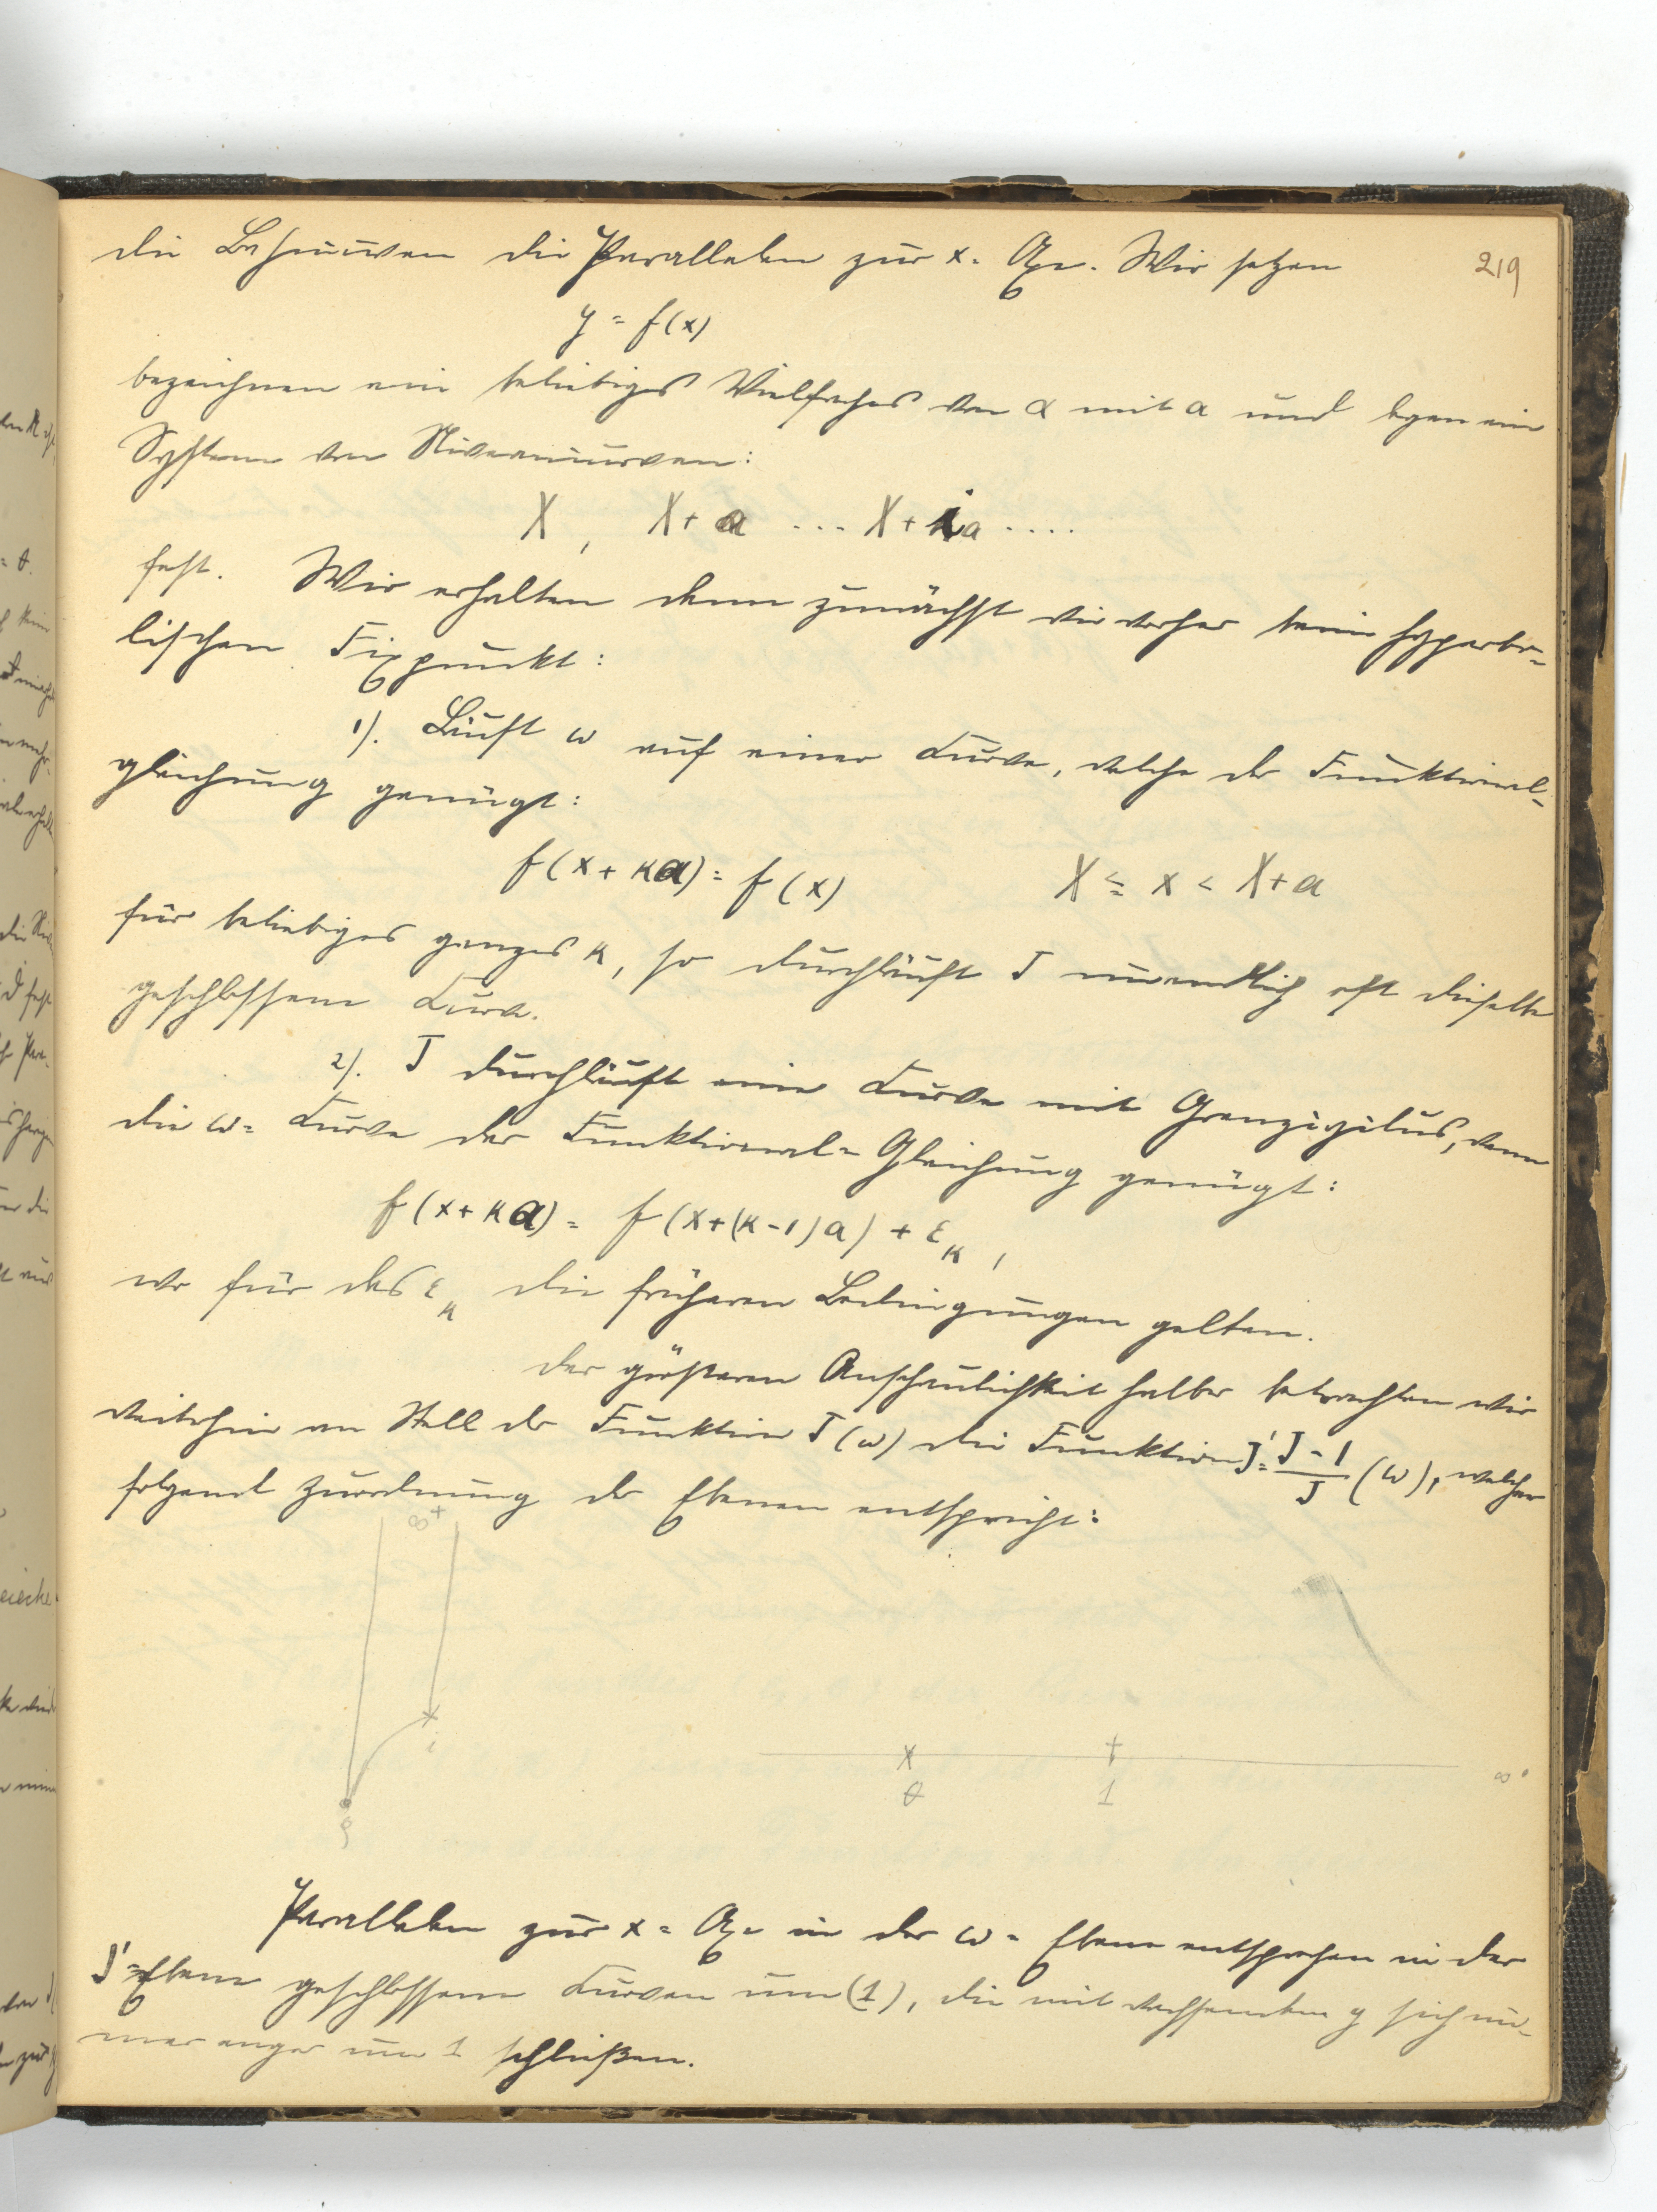 219
die Bahnkurven die Parallelen zur x-Axe. Wir setzen
y = f(x)
bezeichnen ein beliebiges Vielfaches von α mit a und legen ein
System von Niveaukurven:
X, X+a ... X+ia ....
fest. Wir erhalten dann zunächst wie vorher beim hyperbo-
lischen Fixpunkt:
1). Läuft ω auf einer Kurve, welche der Funktional-
gleichung genügt:
f(x+κa) = f(x) X ≦ x < X+a
für beliebiges ganzes κ, so durchläuft J unendlich oft dieselbe
geschlossene Kurve.
2). J durchläuft eine Kurve mit Grenzzyklus, wenn
die ω-Kurve der Funktional-Gleichung genügt:
f(x+κa) = f(x+(κ-1)a) + ε_κ,
wo für das ε_κ die früheren Bedingungen gelten.
Der größeren Anschaulichkeit halber betrachten wir
weiterhin an Stelle der Funktion J(ω) die Funktion J' = (J-1)/J (ω), welcher
folgende Zuordnung der Ebenen entspricht:
∞ +
i
ρ
0 1 ∞
Parallelen zur x-Axe in der ω-Ebene entsprechen in der
J'-Ebene geschlossene Kurven um (1), die mit wachsendem y sich im-
mer enger um 1 schließen.